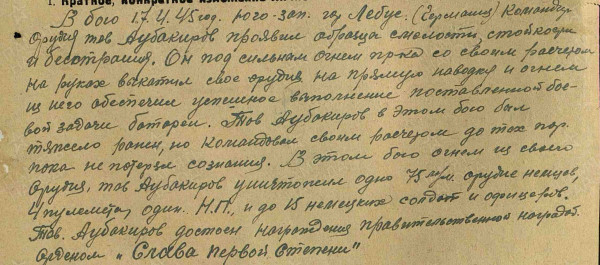 I. Краткое, конкретное изложение
В бою 17.4.45 год. юго-зап. гор. Лебус. (Германия) Командир
орудия тов Аубакиров проявил образец смелости, стойкости
и бесстрашия. Он под сильным огнем пр-ка со своим расчетом
на руках выкатил свое орудие на прямую наводку и огнем
из него обеспечил успешное выполнение поставленной бое-
вой задачи батареи. Тов Аубакиров в этом бою был
тяжело ранен, но командовал своим расчетом до тех пор.
пока не потерял сознания. В этом бою огнем из своего
орудия, тов Аубакиров уничтожил одно 75 м/м. орудие немцев,
4 пулемета, один. Н.П., и до 15 немецких солдат и офицеров.
Тов. Аубакиров достоен награждения правительственной наградой
орденом „Слава первой степени"